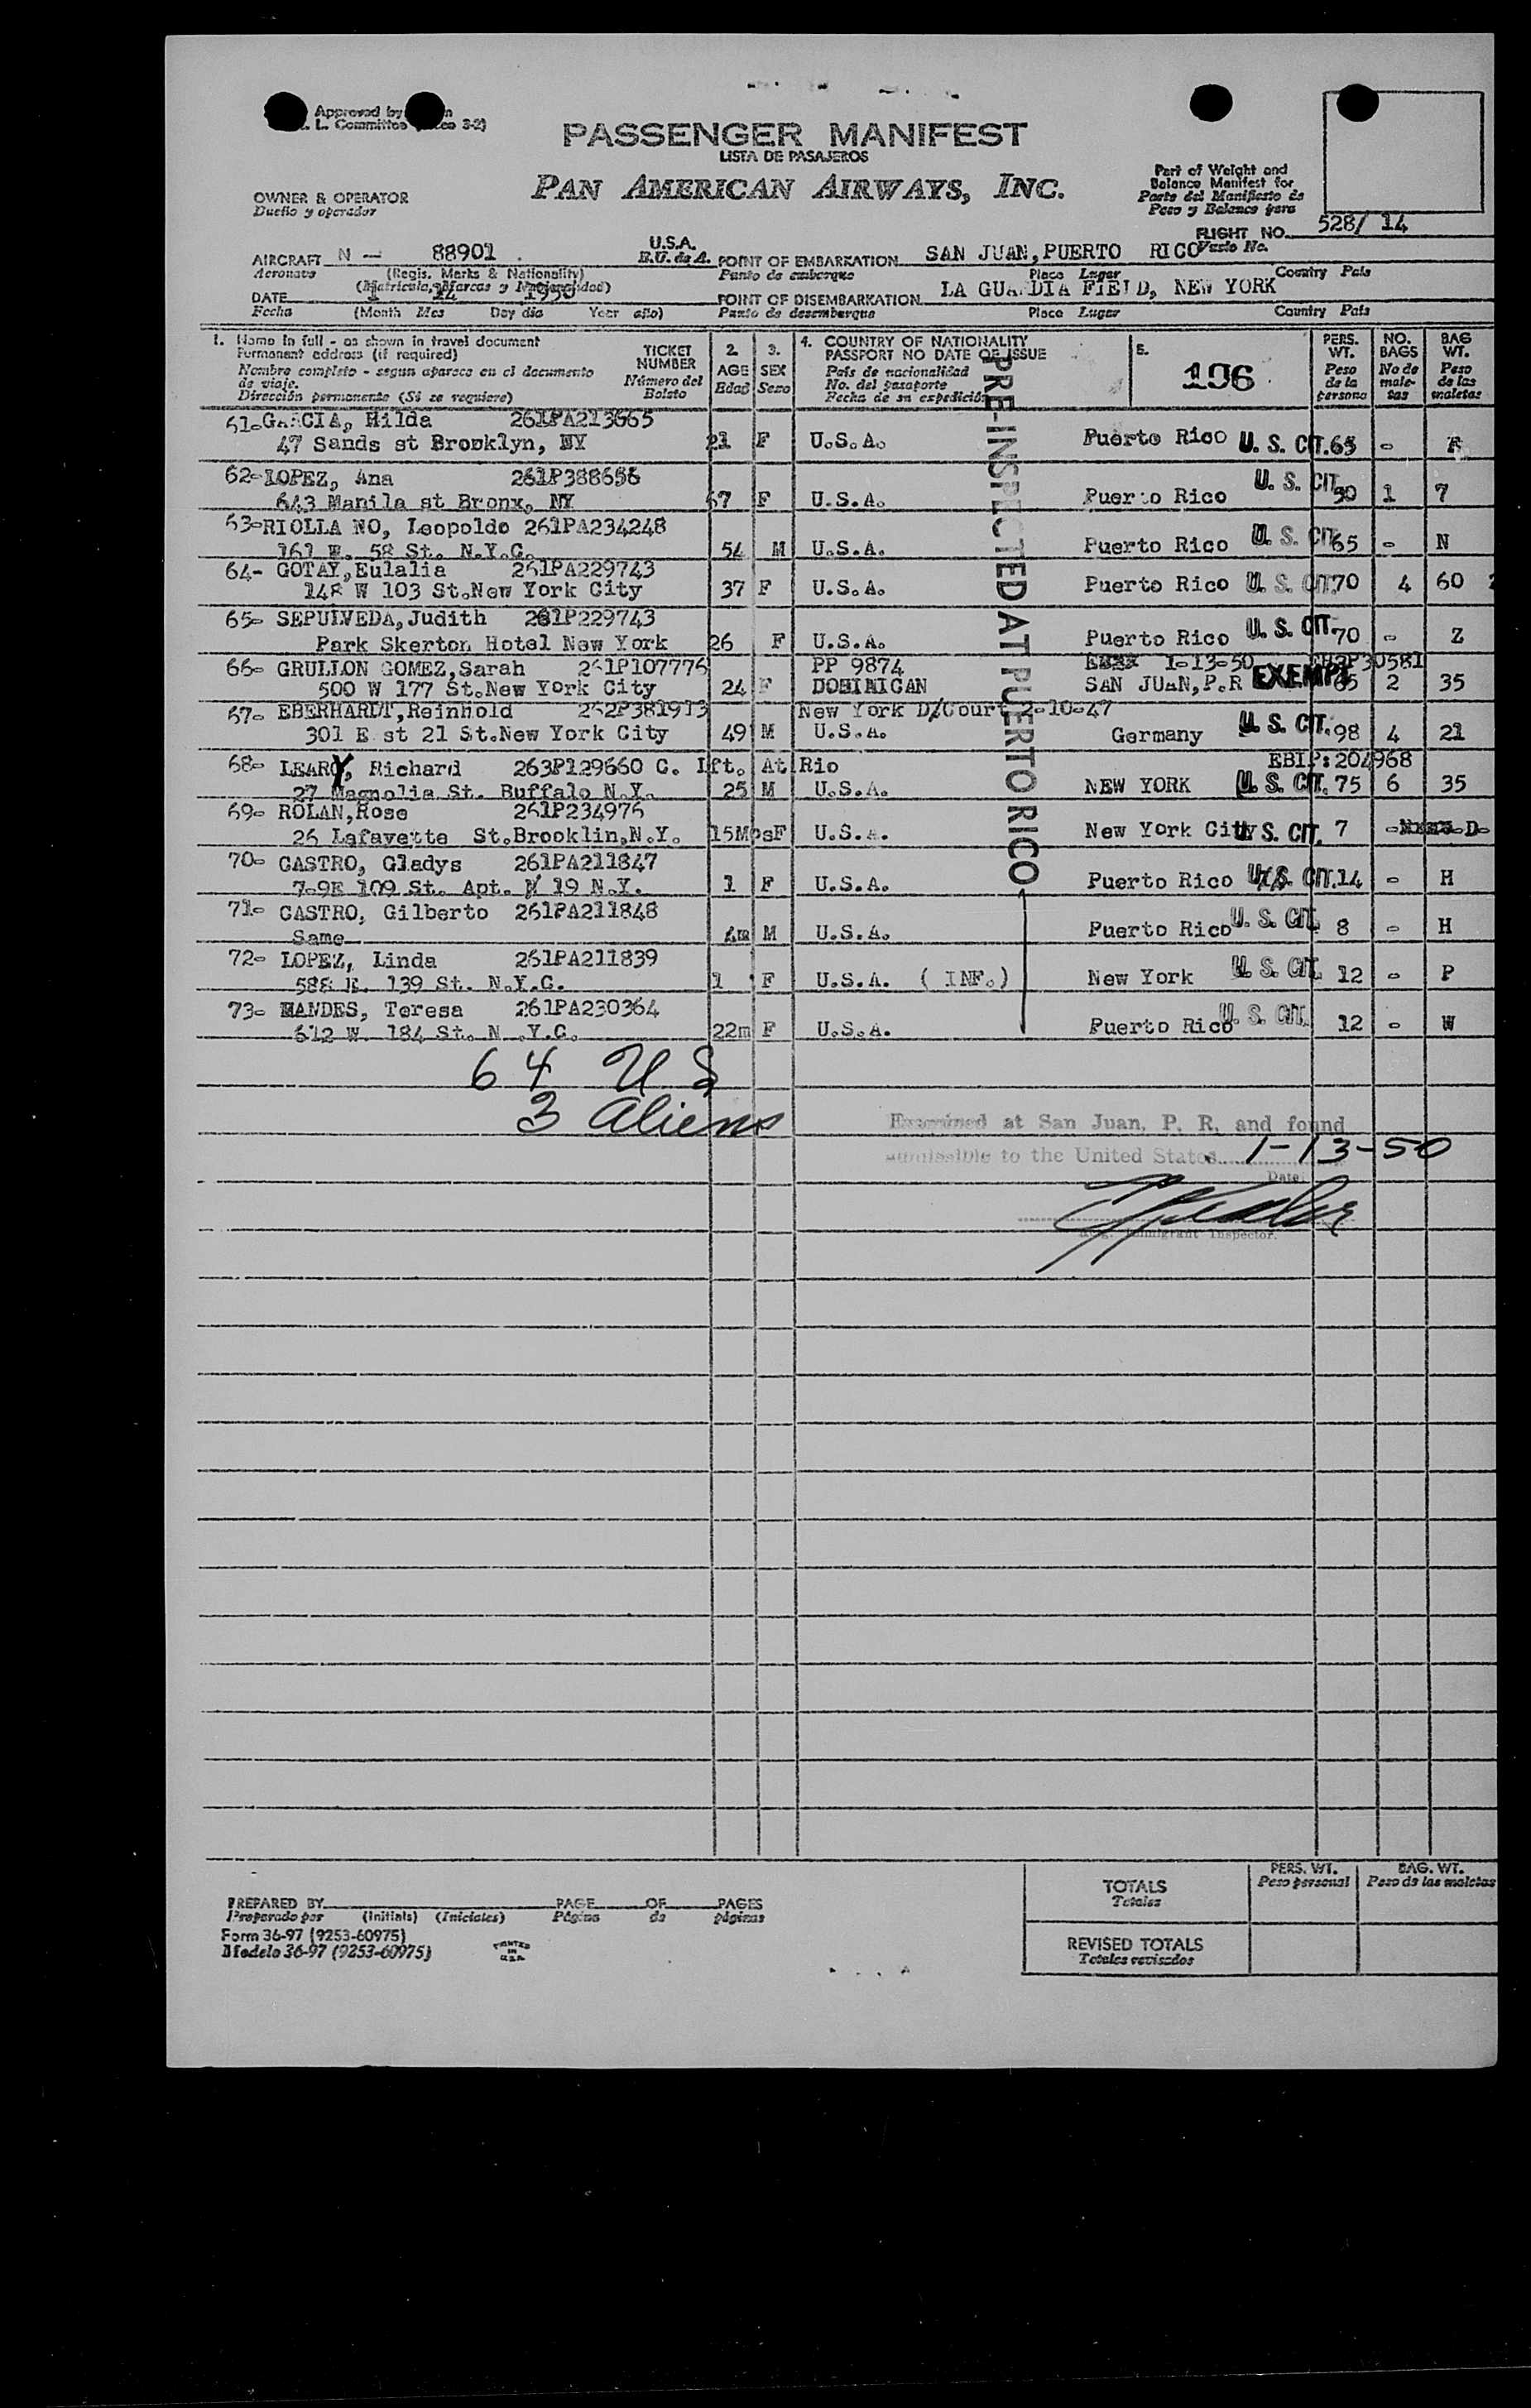 Approved by
L. Committee 3-2)
PASSENGER MANIFEST
LISTA DE PASAJEROS
PAN AMERICAN AIRWAYS, INC.
Part of Weight and
Balance Manifest for
Parte del Manifiesto de
Peso y Balance para
OWNER & OPERATOR
Dueño y operador
FLIGHT NO. 528/ 14
Vuelo No.
AIRCRAFT N - 88901 U.S.A.
E.U. de A.
Aeronave (Regis. Marks & Nationality)
(Matricula, Marcas y Nacionalidad)
POINT OF EMBARKATION SAN JUAN, PUERTO RICO
Punto de embarque Place Lugar Country Pais
DATE 1 14 1950
Fecha (Month Mes Day dia Year año)
POINT OF DISEMBARKATION LA GUARDIA FIELD, NEW YORK
Punto de desembarque Place Lugar Country Pais
1. Name in full - as shown in travel document
Permanent address (if required)
Nombre completo - segun aparece en el documento
de viaje.
Dirección permanente (Si se requiere)
TICKET
NUMBER
Número del
Boleto
2.
AGE
Edad
3.
SEX
Sexo
4. COUNTRY OF NATIONALITY
PASSPORT NO DATE OF ISSUE
País de nacionalidad
No. del pasaporte
Fecha de su expedición
5.
196
PERS.
WT.
Peso
de la
persona
NO.
BAGS
No de
male-
tas
BAG
WT.
Peso
de las
maletas
PRE-INSPECTED AT PUERTO RICO
61- GARCIA, Hilda 261PA213665
47 Sands st Brooklyn, NY 21 F U.S.A. Puerto Rico U. S. CIT. 65 -
62- LOPEZ, Ana 261P388656
643 Manila st Bronx, NY 67 F U.S.A. Puerto Rico U. S. CIT. 90 1 7
63- RIOLLA NO, Leopoldo 261PA234248
161 W. 58 St. N.Y.C. 54 M U.S.A. Puerto Rico U. S. CIT. 65 - N
64- GOTAY, Eulalia 261PA229743
148 W 103 St. New York City 37 F U.S.A. Puerto Rico U. S. CIT. 70 4 60
65- SEPULVEDA, Judith 261P229743
Park Skerton Hotel New York 26 F U.S.A. Puerto Rico U. S. CIT. 70 - Z
66- GRULLON GOMEZ, Sarah 261P107776 PP 9874 1-13-50
500 W 177 St. New York City 24 F DOMINICAN SAN JUAN, P.R EXEMPT 65 2 35
67- EBERHARDT, Reinhold 262P381913 New York D/Court 2-10-47
301 E st 21 St. New York City 49 M U.S.A. Germany U. S. CIT. 98 4 21
68- LEARY, Richard 263P129660 C. Ift. At Rio EBIP: 204968
27 Magnolia St. Buffalo N.Y. 25 M U.S.A. NEW YORK U. S. CIT. 75 6 35
69- ROLAN, Rose 261P234976
26 Lafayette St. Brooklin, N.Y. 15Mos F U.S.A. New York City U. S. CIT. 7 - D-
70- CASTRO, Gladys 261PA211847
7-9E 109 St. Apt. 19 N.Y. 1 F U.S.A. Puerto Rico U. S. CIT. 14 - H
71- CASTRO, Gilberto 261PA211848
Same 4m M U.S.A. Puerto Rico U. S. CIT. 8 - H
72- LOPEZ, Linda 261PA211839
588 E. 139 St. N.Y.C. 1 F U.S.A. ( INF.) New York U. S. CIT. 12 - P
73- MANDES, Teresa 261PA230364
612 W. 184 St. N .Y.C. 22m F U.S.A. Puerto Rico U. S. CIT. 12 - W
64 US
3 aliens
Examined at San Juan, P. R. and found
admissible to the United States 1-13-50
Date
Immigrant Inspector.
TOTALS
Totales
PERS. WT.
Peso personal
BAG. WT.
Peso de las maletas
REVISED TOTALS
Totales revisados
PREPARED BY PAGE OF PAGES
Preparado por (Initials) (Iniciales) Página de páginas
Form 36-97 (9253-60975)
Modelo 36-97 (9253-60975)
PRINTED
IN
U.S.A.